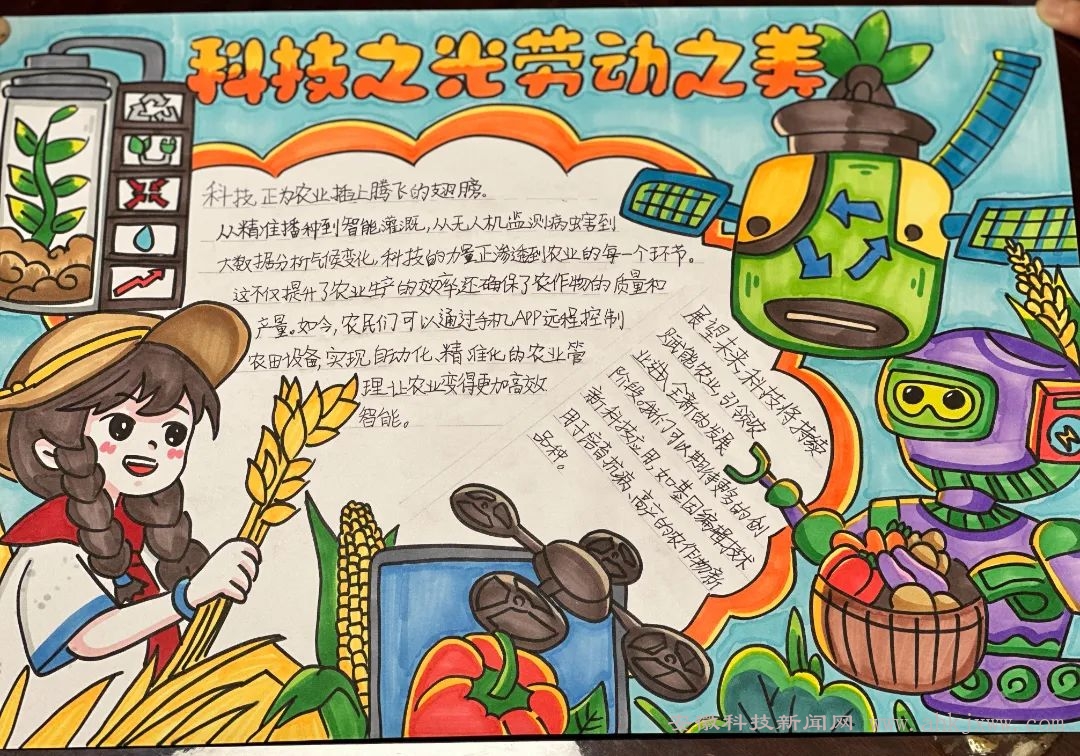 科技之光劳动之美
科技,正为农业插上腾飞的翅膀。
从精准播种到智能灌溉,从无人机监测病虫害到
大数据分析气候变化,科技的力量正渗透到农业的每一个环节。
这不仅提升了农业生产的效率,还确保了农作物的质量和
产量。如今,农民们可以通过手机APP远程控制
农田设备,实现自动化、精准化的农业管
理,让农业变得更加高效
智能。
展望未来,科技将持续
赋能农业,引领农
业进入全新的发展
阶段。我们可以期待更多的创
新科技应用,如基因编辑技术
用于培育抗病、高产的农作物新
品种。
安徽科技新闻网 www.